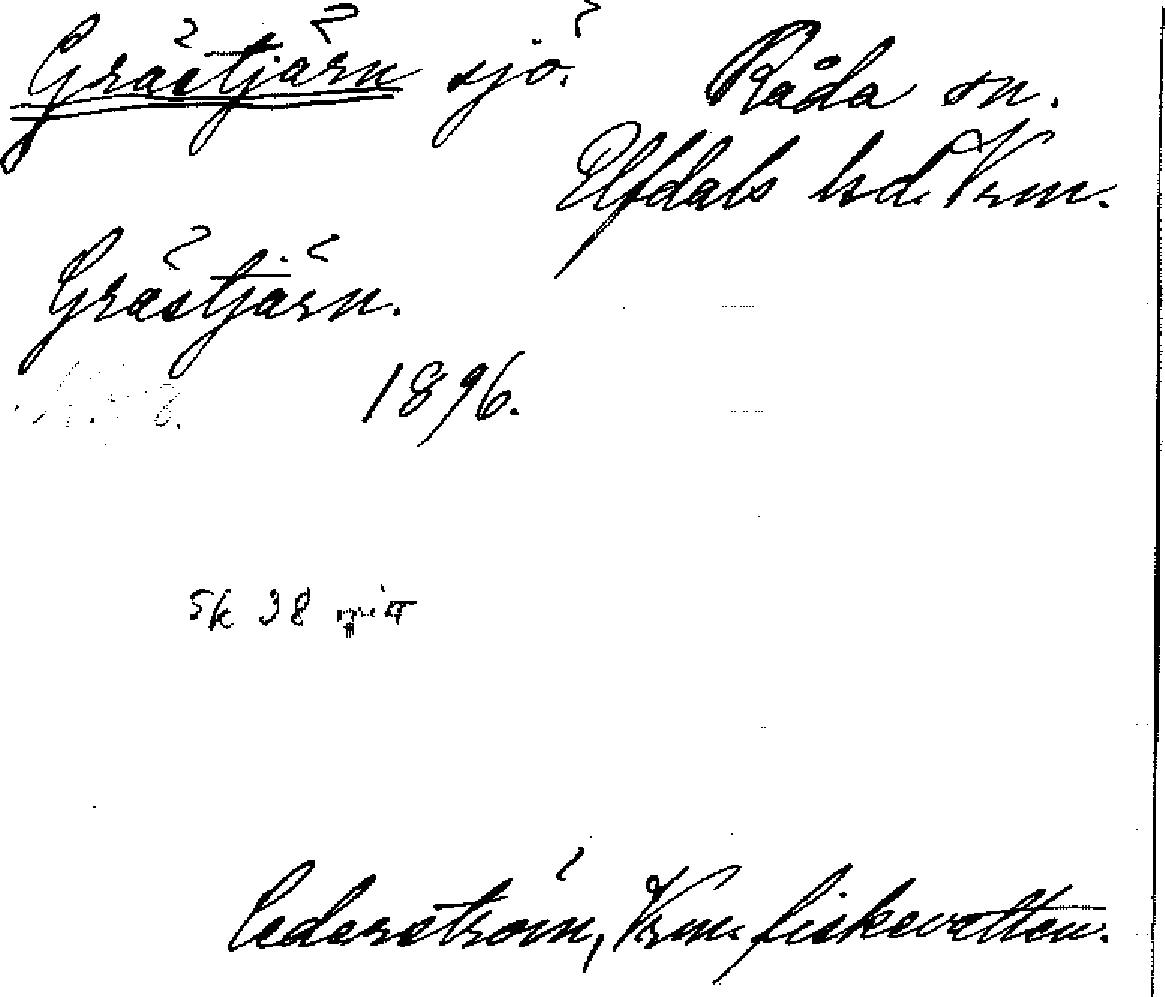 Grästjärn sjö. Råda sn.
Elfdals hd. Vrm.
Grästjärn.
1896.
Sk 38
Cederström, Vrm. fiskevatten.